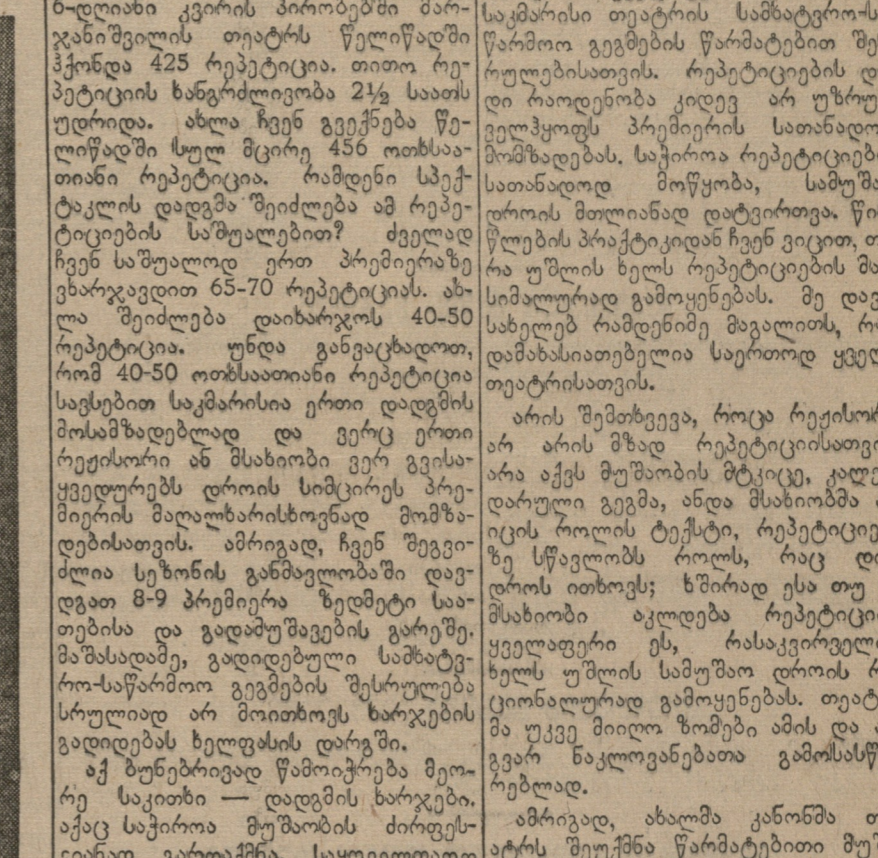 6-დღიანი კვირის პირობებში მარ-
ჯანიშვილის თეატრს წელიწადში
ჰქონდა 425 რეპეტიცია. თითო რე-
პეტიციის ხანგრძლივობა 2½ საათს
უდრიდა. ახლა ჩვენ გვექნება წე-
ლიწადში სულ მცირე 456 ოთხსაა-
თიანი რეპეტიცია. რამდენი სპექ-
ტაკლის დადგმა შეიძლება ამ რეპე-
ტიციების საშუალებით? ძველად
ჩვენ საშუალოდ ერთ პრემიერაზე
ვხარჯავდით 65-70 რეპეტიციას. ახ-
ლა შეიძლება დაიხარჯოს 40-50
რეპეტიცია. უნდა განვაცხადოთ,
რომ 40-50 ოთხსაათიანი რეპეტიცია
სავსებით საკმარისია ერთი დადგმის
მოსამზადებლად და ვერც ერთი
რეჟისორი ან მსახიობი ვერ გვისა-
ყვედურებს დროის სიმცირეს პრე-
მიერის მაღალხარისხოვნად მომზა-
დებისათვის. ამრიგად, ჩვენ შეგვი-
ძლია სეზონის განმავლობაში დავ-
დგათ 8-9 პრემიერა ზედმეტი საა-
თებისა და გადამუშავების გარეშე.
მაშასადამე, გადიდებული სამხატვ-
რო-საწარმოო გეგმების შესრულება
სრულიად არ მოითხოვს ხარჯების
გადიდებას ხელფასის დარგში.
აქ ბუნებრივად წამოიჭრება მეო-
რე საკითხი — დადგმის ხარჯები.
აქაც საჭიროა მუშაობის ძირფეს-
ვიანად გარდაქმნა
საკმარისი თეატრის სამხატვრო-ს
წარმოო გეგმების წარმატებით შე
რულებისათვის. რეპეტიციების დ
დი რაოდენობა კიდევ არ უზრუ
ველჰყოფს პრემიერის სათანადო
მომზადებას. საჭიროა რეპეტიციები
სათანადოდ მოწყობა, სამუშა
დროის მთლიანად დატვირთვა. წი
წლების პრაქტიკიდან ჩვენ ვიცით, თ
რა უშლის ხელს რეპეტიციების მა
სიმალურად გამოყენებას. მე დავ
სახელებ რამდენიმე მაგალითს, რ
დამახასიათებელია საერთოდ ყველ
თეატრისათვის.
არის შემთხვევა, როცა რეჟისორ
არ არის მზად რეპეტიციისათვი
არა აქვს მუშაობის მტკიცე, კალე
დარული გეგმა, ანდა მსახიობმა ა
იცის როლის ტექსტი, რეპეტიციე
ზე სწავლობს როლს, რაც დი
დროს ითხოვს; ხშირად ესა თუ
მსახიობი აკლდება რეპეტიცი
ყველაფერი ეს, რასაკვირველი
ხელს უშლის სამუშაო დროის რ
ციონალურად გამოყენებას. თეატ
მა უკვე მიიღო ზომები ამის და ა
გვარ ნაკლოვანებათა გამოსასწ
რებლად.
ამრიგად, ახალმა კანონმა თ
ატრს შეუქმნა წარმატებითი მუშ